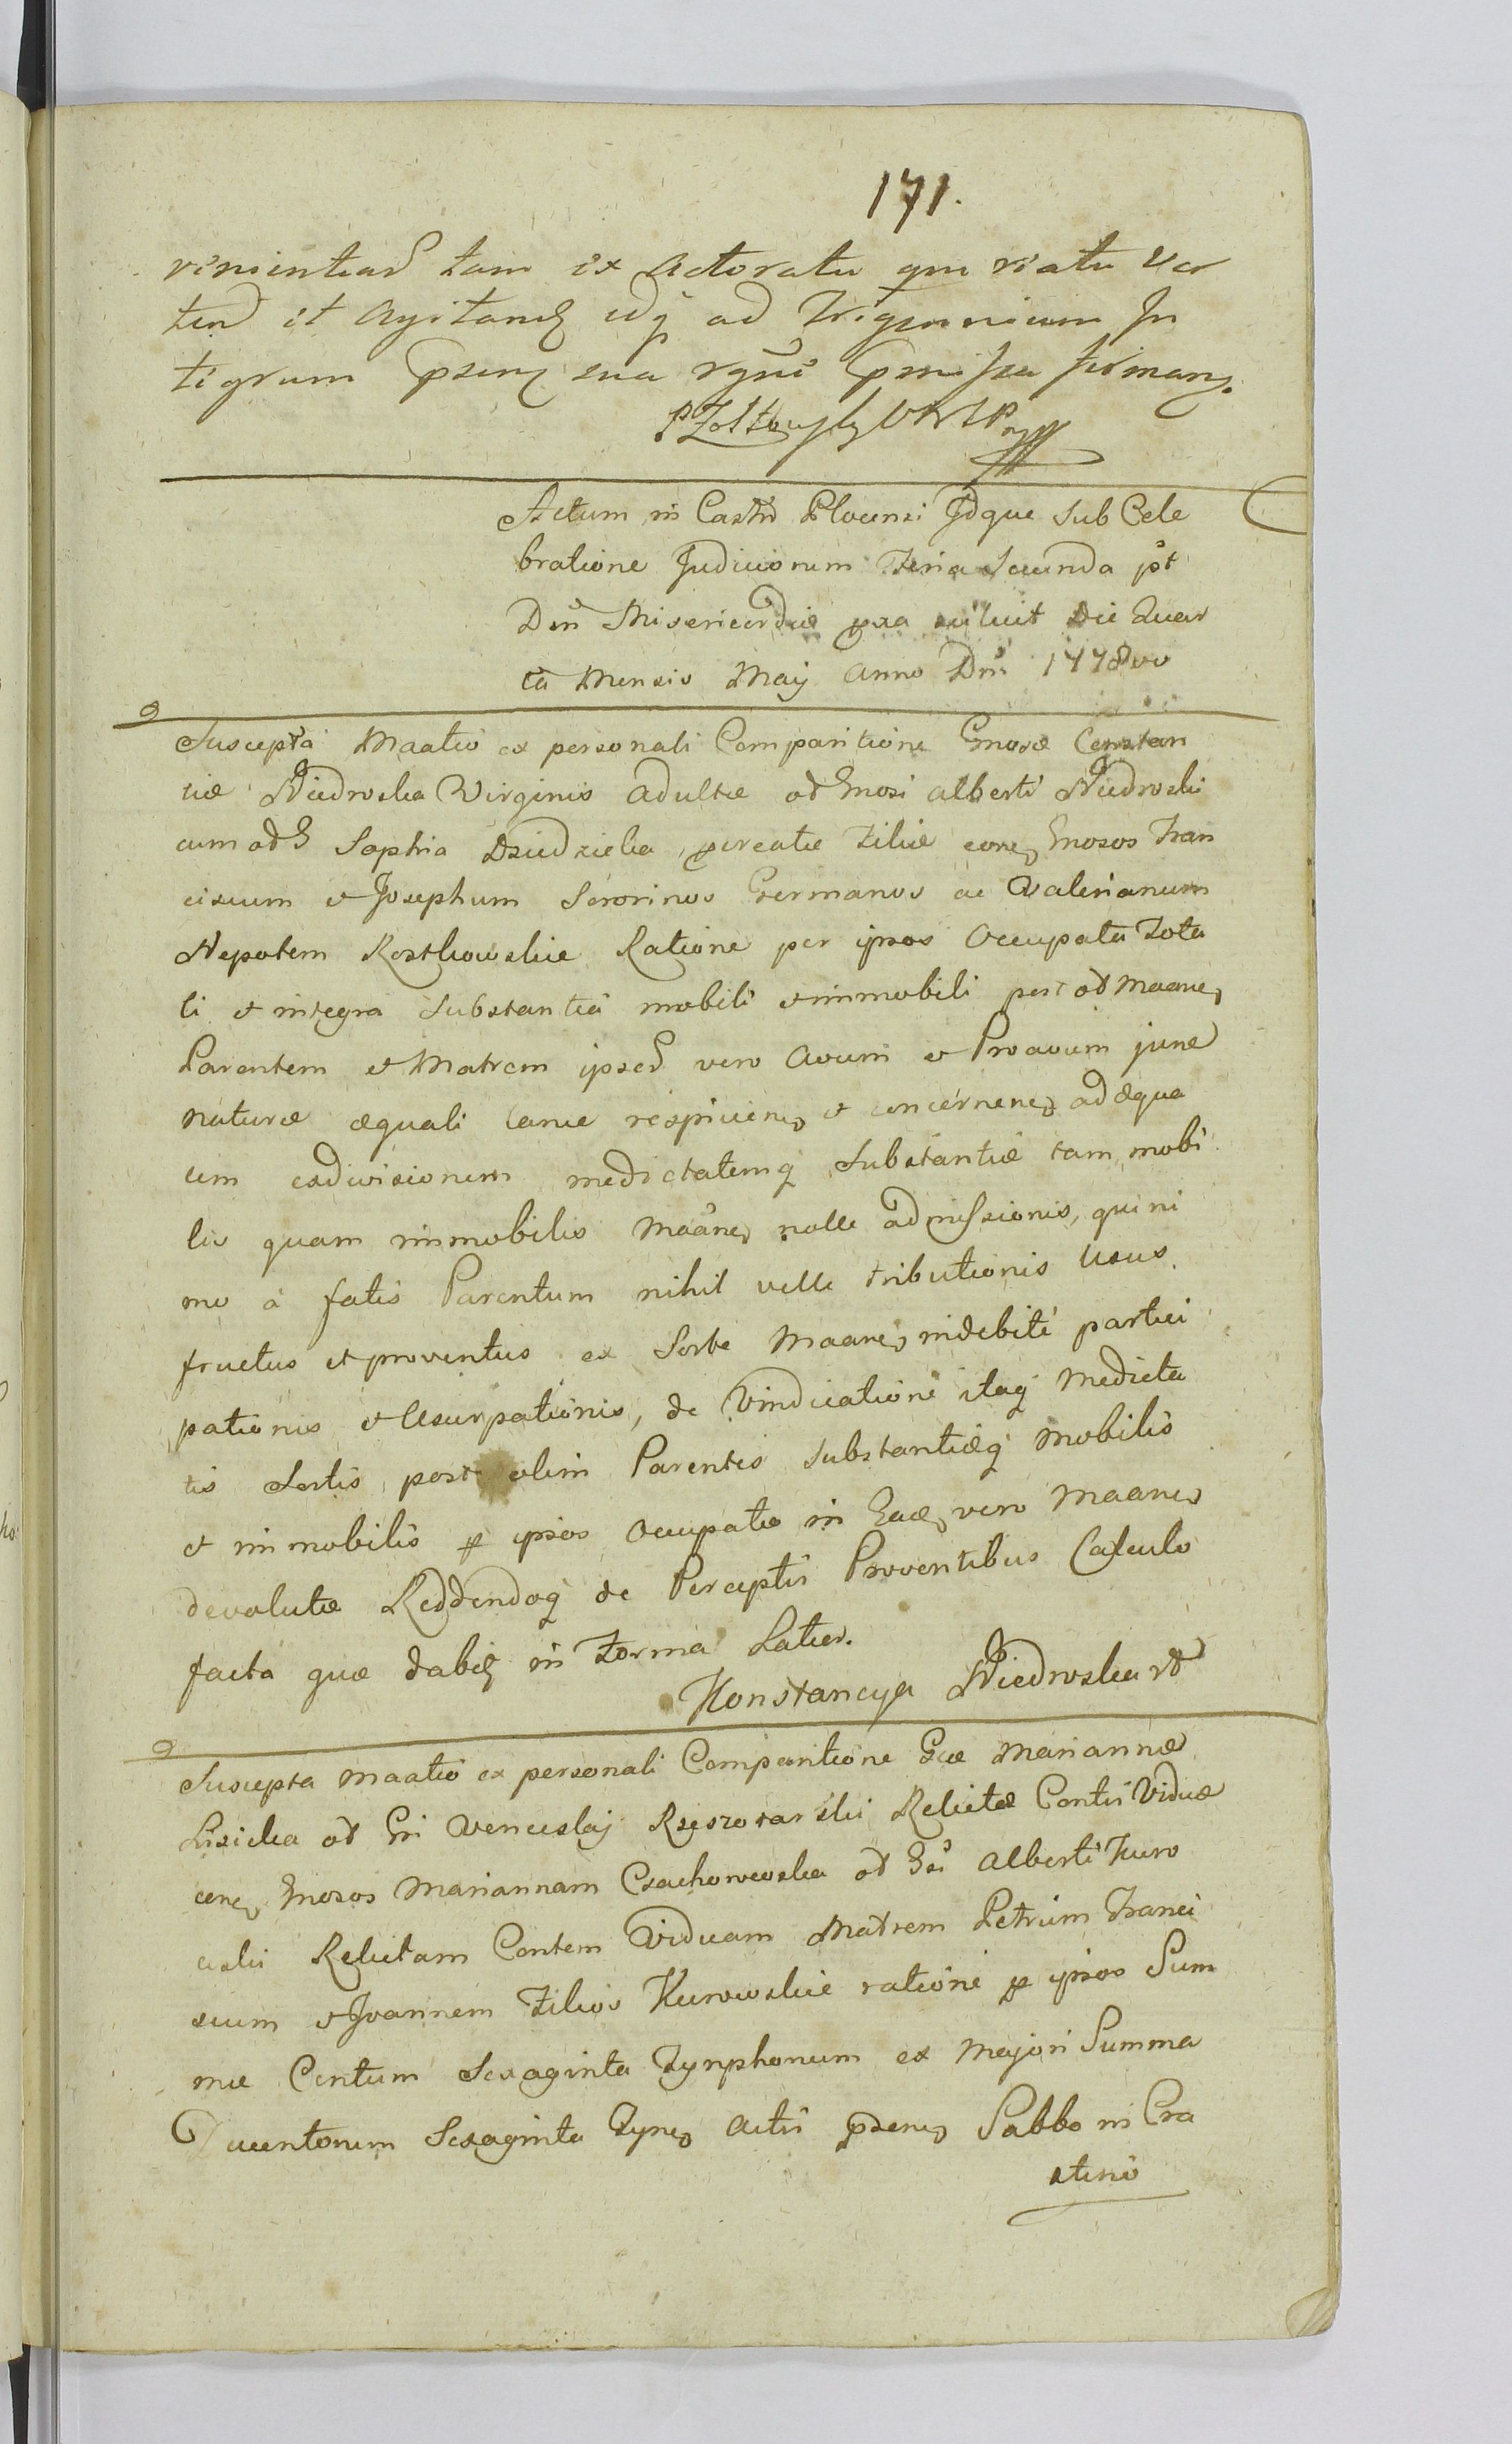 171.
tam ex Actoratu qm reatu ver
tend et Agitand idq ad Trigennium In
tegrum sua firmang.
Actum in Castro Plocensi Idque sub Cele
bratione Judiciorum Feria Secunda pst
Dm Misericordiæ die Quar
ta Mensis Maij Anno Dni 1778vo
Suscepta Maatio ex personali Comparitione Gnosæ Constan
tiæ Niedroska Virginis adultæ od Gnosi Alberti Niedroski
cum od G Sophia Dziedzicka, pcreatæ Filiæ conq Gnosos Fran
ciscum et Josephum Sororinos Germanos ac Valerianum
Nepotem Rostkowskie Ratione per ipsos Occupata Tota
li et integra Substantia mobili et immobili post od Maane,
Parentem et Matrem ipsed vero Avum et Proavum jure
naturæ æquali lance respicien, et concernen, adæqua
em exdivisionem medietatemq Substantiæ tam mobi
lis quam immobilis Maane, nolle admissionis, quini
mo a fatis Parentum nihil velle tributionis usus
fructus et proventus ex Sorte Maane, indebite partici
pationis et Usurpationis, de Vindicatione itaq Medieta
tis Sortis post olim Parentis Substantiæq mobilis
et immobilis p ipsos Occupatæ in vero Maane,
devolutæ Reddendoq de Perceptis Proventibus Calculo
facta quæ dabit in Forma Latior.
Konstancya Niedroska
Suscepta Maatio ex personali Comparitione Gæ Mariannæ
Lisicka od Gi Venceslaj Relictæ Contis Viduæ
conq Gnosos Mariannam Czachorowska od Gsi Alberti Kuro
wski Relictam Contem Viduam Matrem Petrum Franci
scum et Joannem Filios Kurowskie ratione p ipsos Sum
mæ Centum Sexaginta Tynphonum ex Majori Summa
Ducentorum Sexaginta Tynq Actis psenq Sabbo in Cra
stino